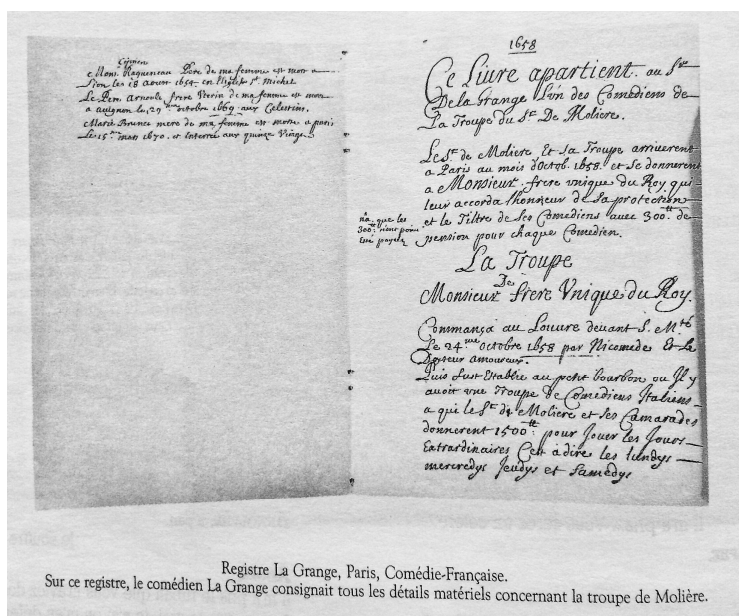 Cyprien
Mons.r Ragueneau Pere de ma femme est mort a
Lion les 18 Aoust 1654 en l'Eglise St. Michel
Le Pere Arnoule frere
a Avignon le 29me octobre 1669 aux Celestins.
Marie Brunet mere de ma femme est morte a paris
Le 15me mars 1670. et Enterrée aux quinze Vingt.
1658
Ce Liure apartient. au Sr
De la Grange L'vn des Comediens de
La Troupe du Sr De Moliere.
Le Sr. de Moliere Et Sa Troupe arriuerent
a Paris au mois d'Octob. 1658. et se donnerent
a Monsieur frere vnique du Roy. qui
leur accorda l'honneur de Sa protection
et le Tiltre de Ses Comediens auec 300tt. de
pension pour chaque Comedien.
na. que les
300tt n'ont point
Esté payeés
La Troupe
De
Monsieur frere Vnique du Roy.
Commança au Louure deuant S. Mté
Le 24me octobre 1658 par Nicomede Et Le
Docteur amoureux.
Puis fust Establie au petit bourbon ou Il y
auoit vne Troupe de Comediens Italiens
a qui le Sr. de Moliere et Ses Camarades
donnerent 1500tt. pour Jouer les Jours
Extraordinaires C'est a dire les lundys
mercredys Jeudys et Samedys
Registre La Grange, Paris, Comédie-Française.
Sur ce registre, le comédien La Grange consignait tous les détails matériels concernant la troupe de Molière.